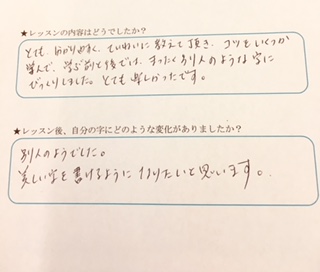 ★レッスンの内容はどうでしたか？
とても 分かりやすく、ていねいに教えて頂き、コツをいくつか
学んで、学ぶ前と後では、まったく別人のような字に
びっくりしました。とても楽しかったです。
★レッスン後、自分の字にどのような変化がありましたか？
別人のようでした。
美しい字を書けるように なりたいと思います。